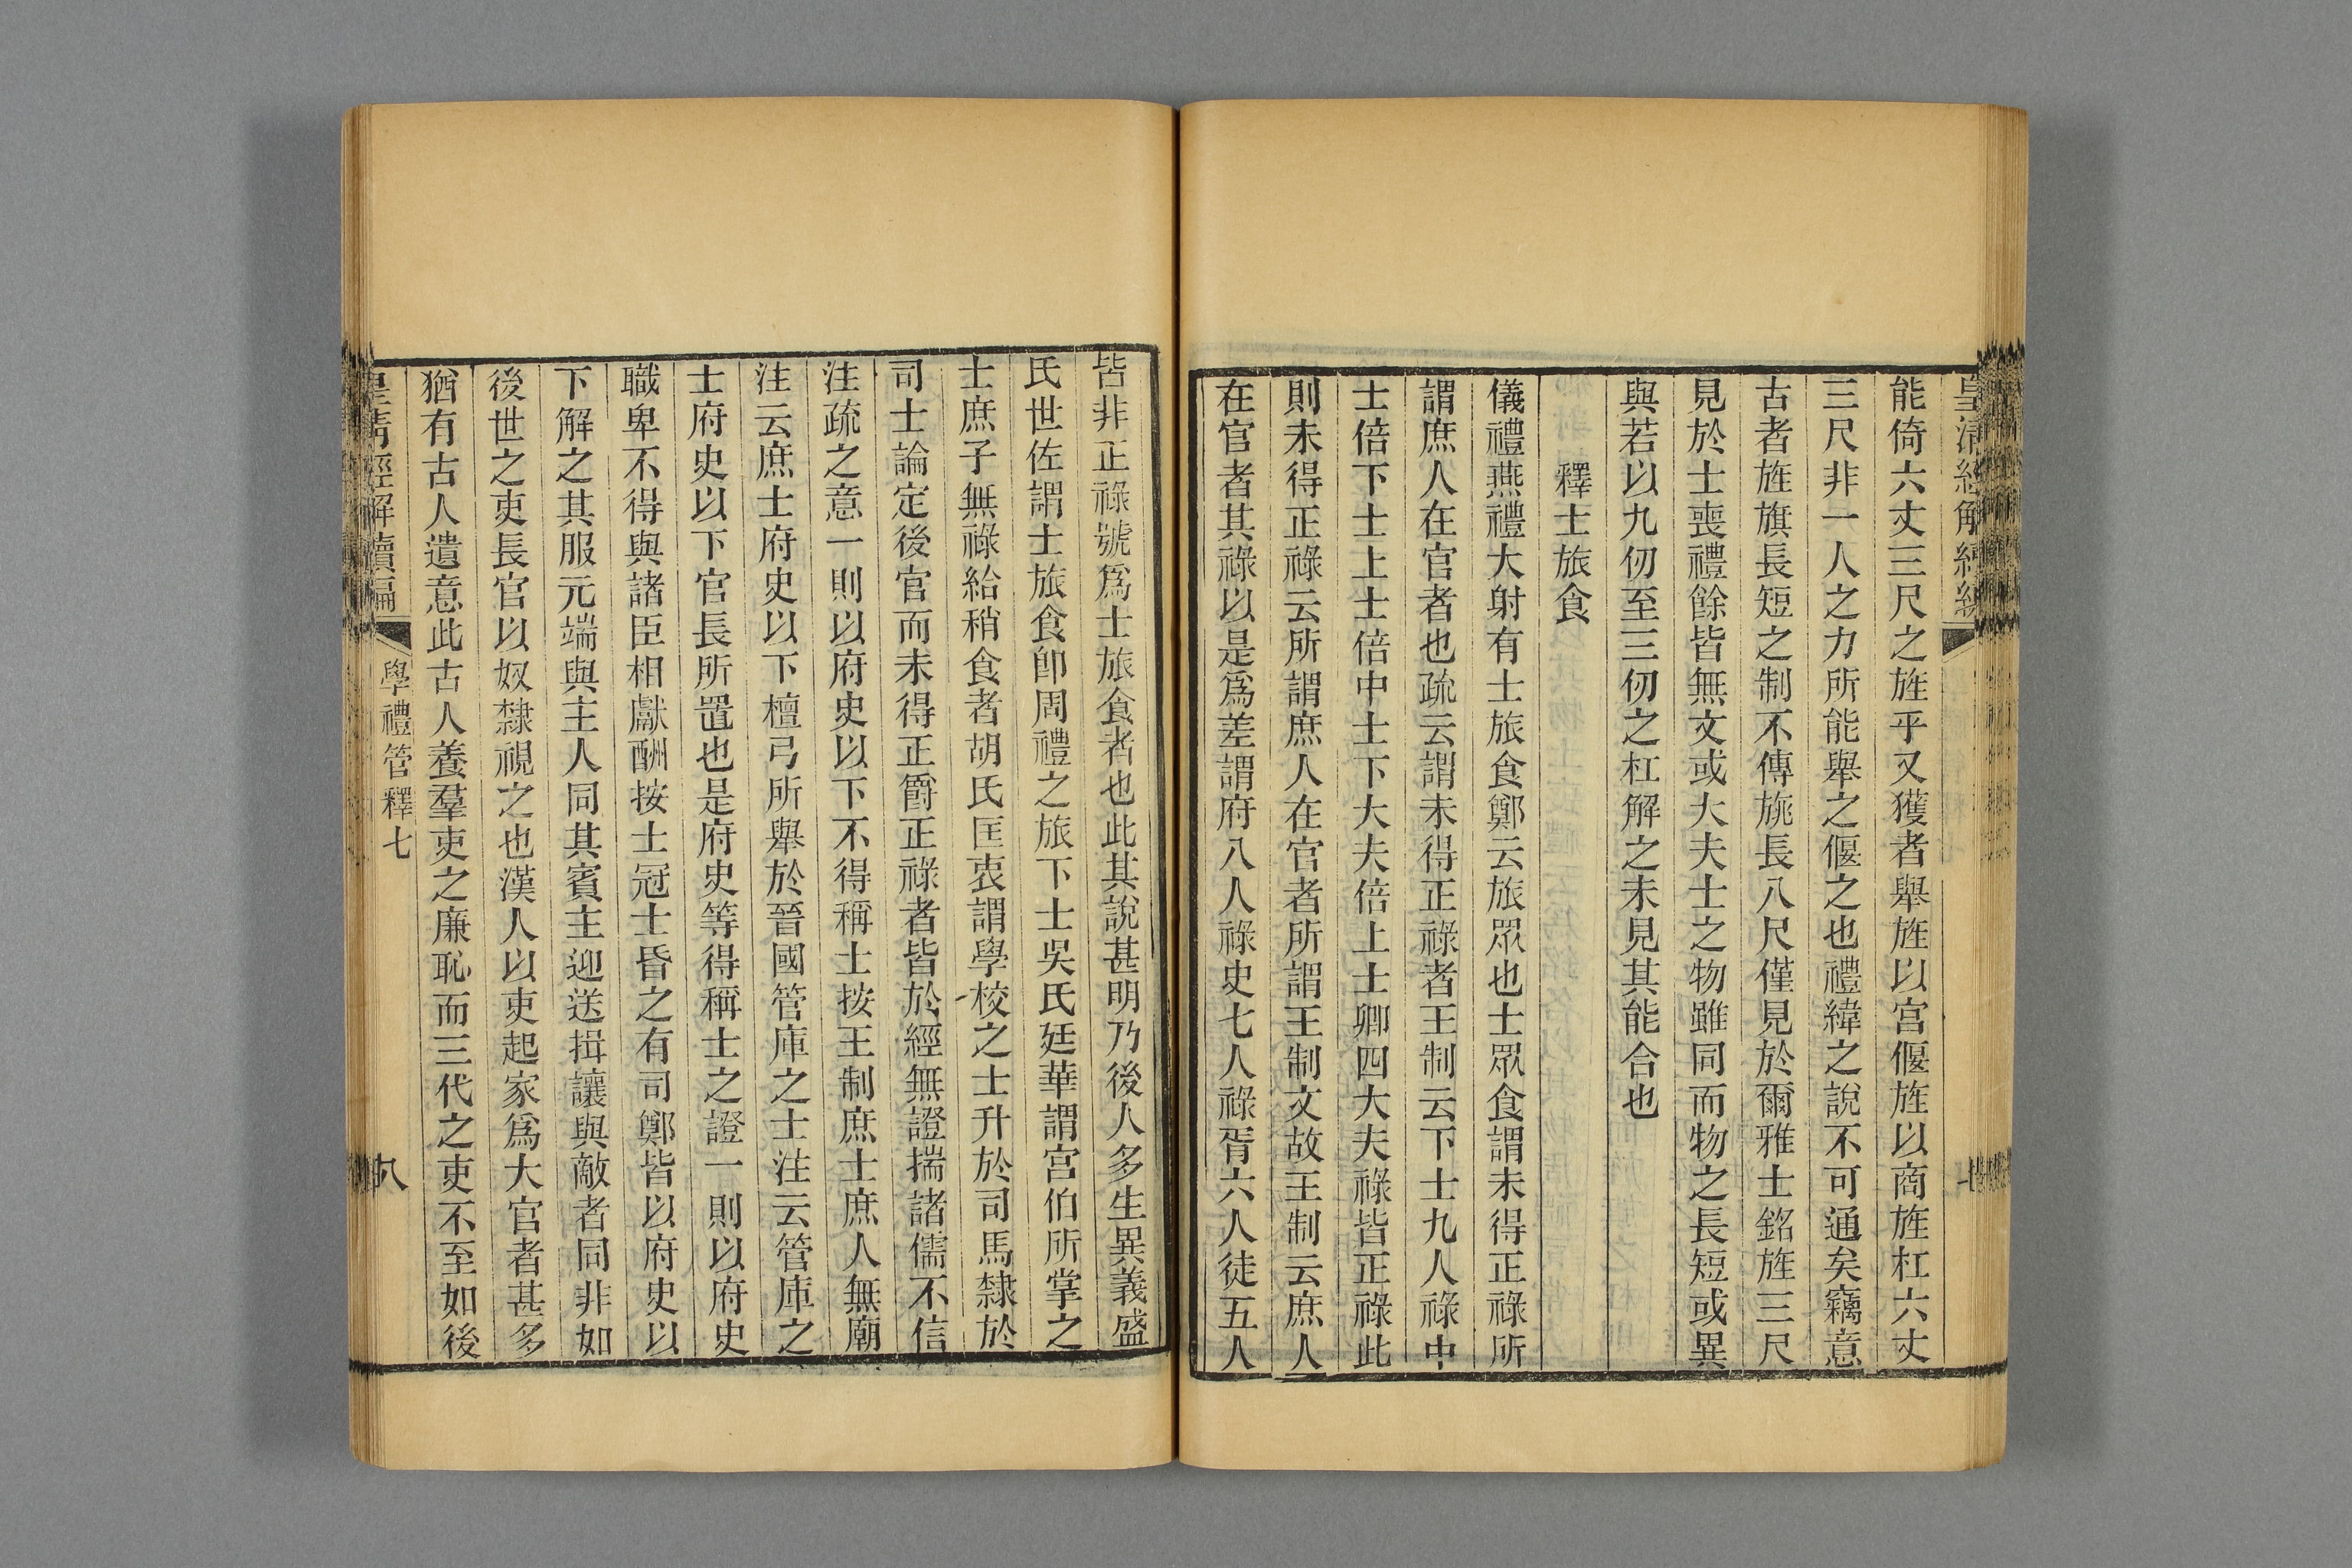 皇清經解續編
能倚六丈三尺之旌乎又獲者舉旌以宮偃旌以商旌杠六丈
三尺非一人之力所能舉之偃之也禮緯之說不可通矣竊意
古者旌旗長短之制不傳旐長八尺僅見於爾雅士銘旌三尺
見於士喪禮餘皆無文或大夫士之物雖同而物之長短或異
與若以九仞至三仞之杠解之未見其能合也
釋士旅食
儀禮燕禮大射有士旅食鄭云旅眾也士眾食謂未得正祿所
謂庶人在官者也疏云謂未得正祿者王制云下士九人祿中
士倍下士上士倍中士下大夫倍上士卿四大夫祿皆正祿此
則未得正祿云所謂庶人在官者所謂王制文故王制云庶人
在官者其祿以是爲差謂府八人祿史七人祿胥六人徒五人
皆非正祿號爲士旅食者也此其說甚明乃後人多生異義盛
氏世佐謂士旅食卽周禮之旅下士吳氏廷華謂宮伯所掌之
士庶子無祿給稍食者胡氏匡衷謂學校之士升於司馬隸於
司士論定後官而未得正爵正祿者皆於經無證揣諸儒不信
注疏之意一則以府史以下不得稱士按王制庶士庶人無廟
注云庶士府史以下檀弓所舉於晉國管庫之士注云管庫之
士府史以下官長所置也是府史等得稱士之證一則以府史
職卑不得與諸臣相獻酬按士冠士昏之有司鄭皆以府史以
下解之其服元端與主人同其賓主迎送揖讓與敵者同非如
後世之吏長官以奴隸視之也漢人以吏起家爲大官者甚多
猶有古人遺意此古人養羣吏之廉恥而三代之吏不至如後
皇清經解續編
學禮管釋七
八